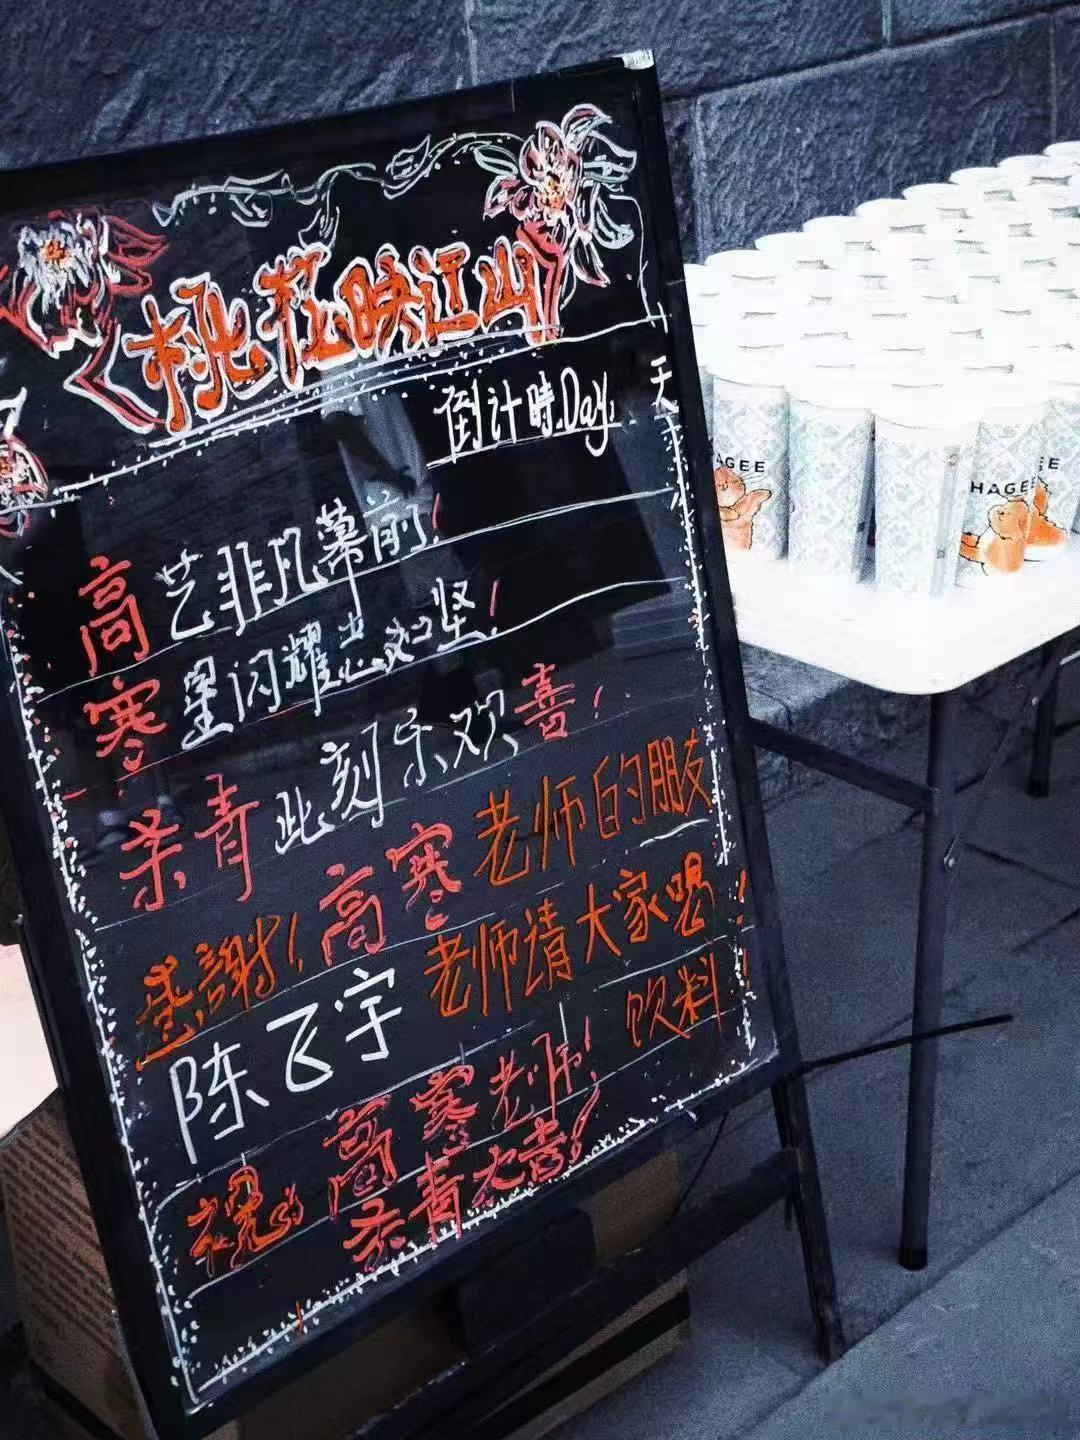 桃花映江山
倒计時Day: 天
高艺非凡幕前!
寒星闪耀志如坚!
杀青此刻乐欢喜!
感謝!高寒老师的朋友
陈飞宇老师请大家喝
饮料!
祝:高寒老师!
杀青大吉!
AGEE
HAGEE
GEE